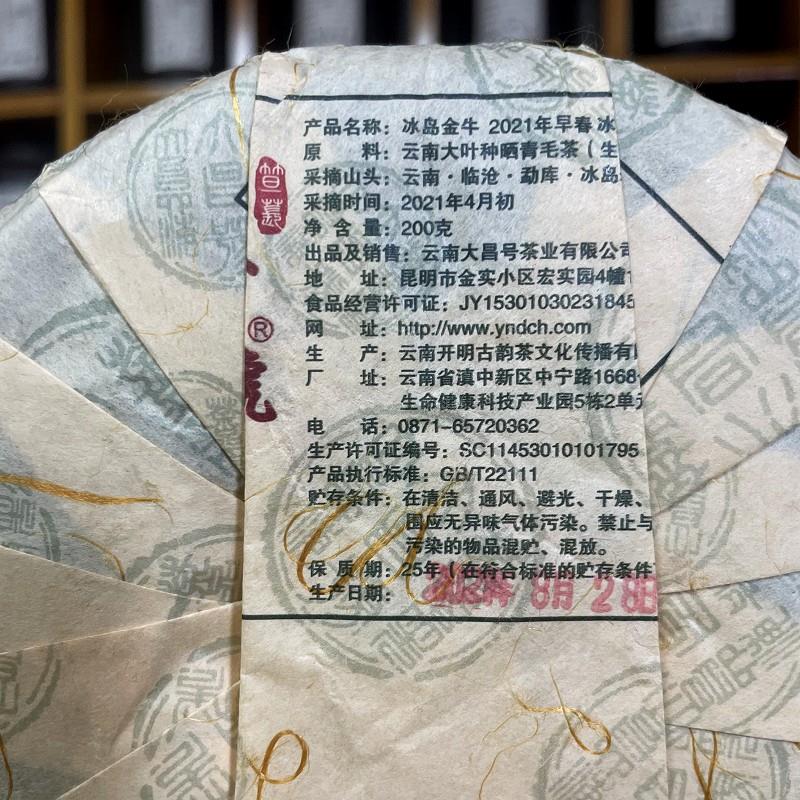 产品名称：冰岛金牛 2021年早春 冰
原　　料：云南大叶种晒青毛茶（生
采摘山头：云南·临沧·勐库·冰岛
采摘时间：2021年4月初
净 含 量：200克
出品及销售：云南大昌号茶业有限公司
地　　址：昆明市金实小区宏实园4幢
食品经营许可证：JY15301030231845
网　　址：http://www.yndch.com
®
生　　产：云南开明古韵茶文化传播有
厂　　址：云南省滇中新区中宁路1668
號
生命健康科技产业园5栋2单元
电　　话：0871-65720362
生产许可证编号：SC11453010101795
产品执行标准：GB/T22111
贮存条件：在清洁、通风、避光、干燥、
围应无异味气体污染。禁止与
污染的物品混贮、混放。
保 质 期：25年（在符合标准的贮存条件
生产日期：
8月 28日